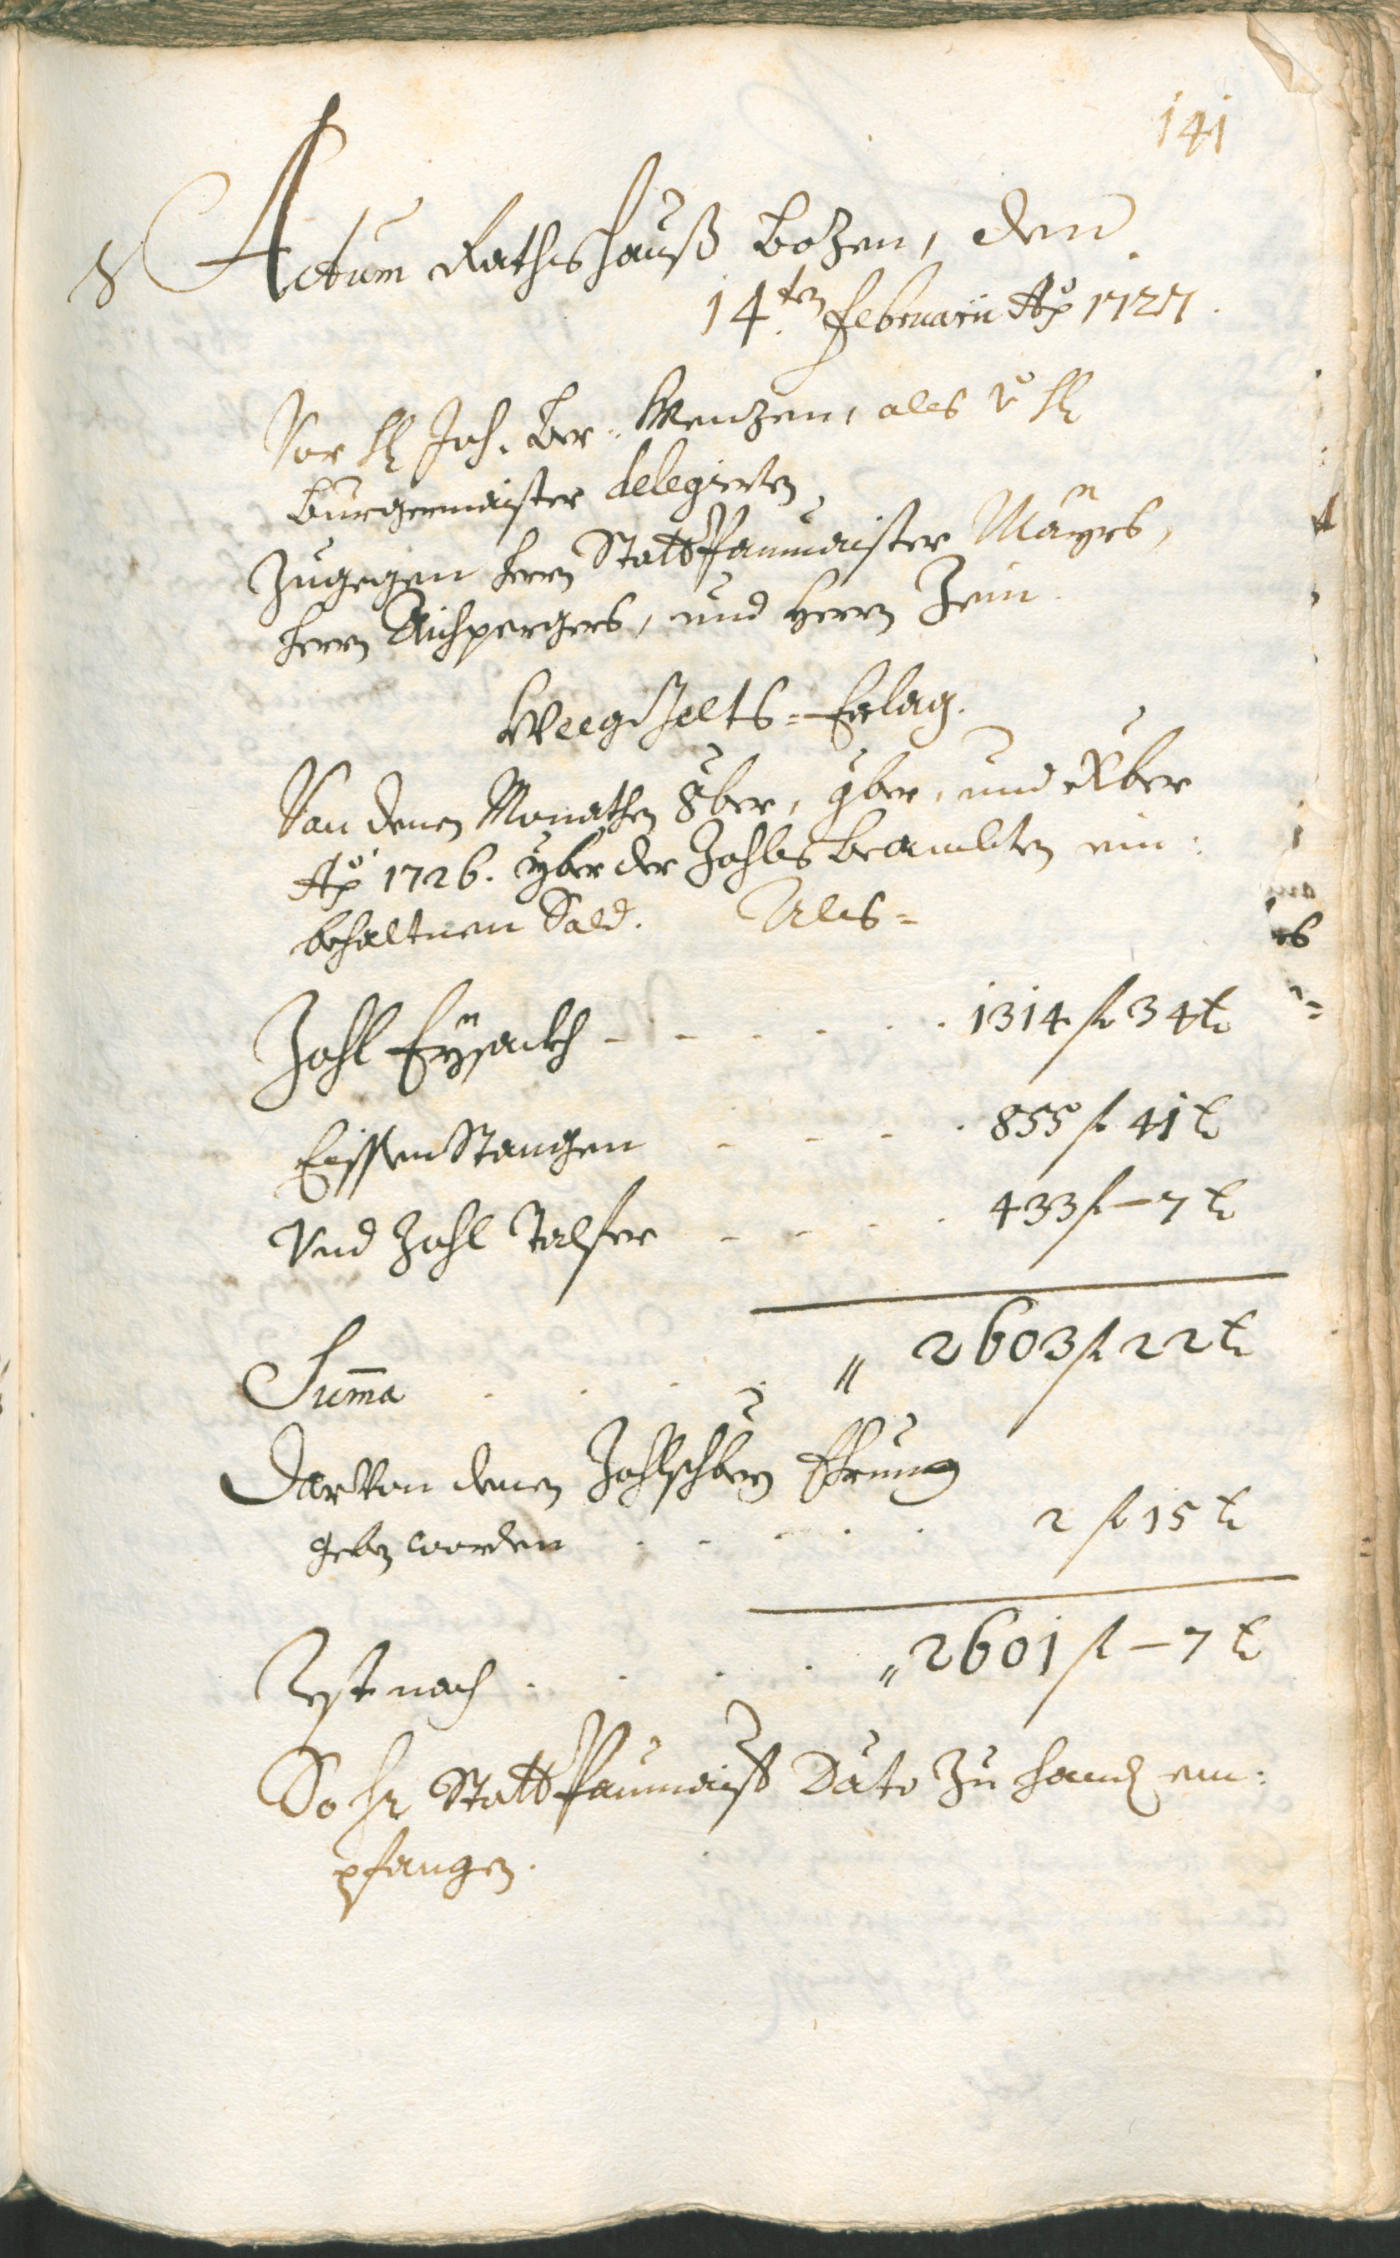 141
Actum Rathshauß Bozen, den
14.ten Februarii Ao 1727.
Vor H Joh. Ber. Menzen, als v H
Burgermaister delegirten
Zugegen herrn Statt Paumaister Mayrs,
herrn Aichpergers, und Herrn Zein.
Weeggelts=Erlag.
Von denen Monathen 8ber, 9ber, und Xber
Ao 1726. yber der Zohls Beambten ein:
behaltnen Sold. Als=
Zohl Eysackh - - - - - - 1314 f 34 k
Eissen Stangen - - - - 855 f 41 k
Und Zohl Talfer - - - - 433 f - 7 k
Suma . . . . " 2603 f 22 k
Darvon denen Zohlschbrn Ehrung
geben worden . . . . . 2 f 15 k
Rest noch . . . . " 2601 f - 7 k
So Hr Statt Paumaist Dato zu handen em:
pfangen.